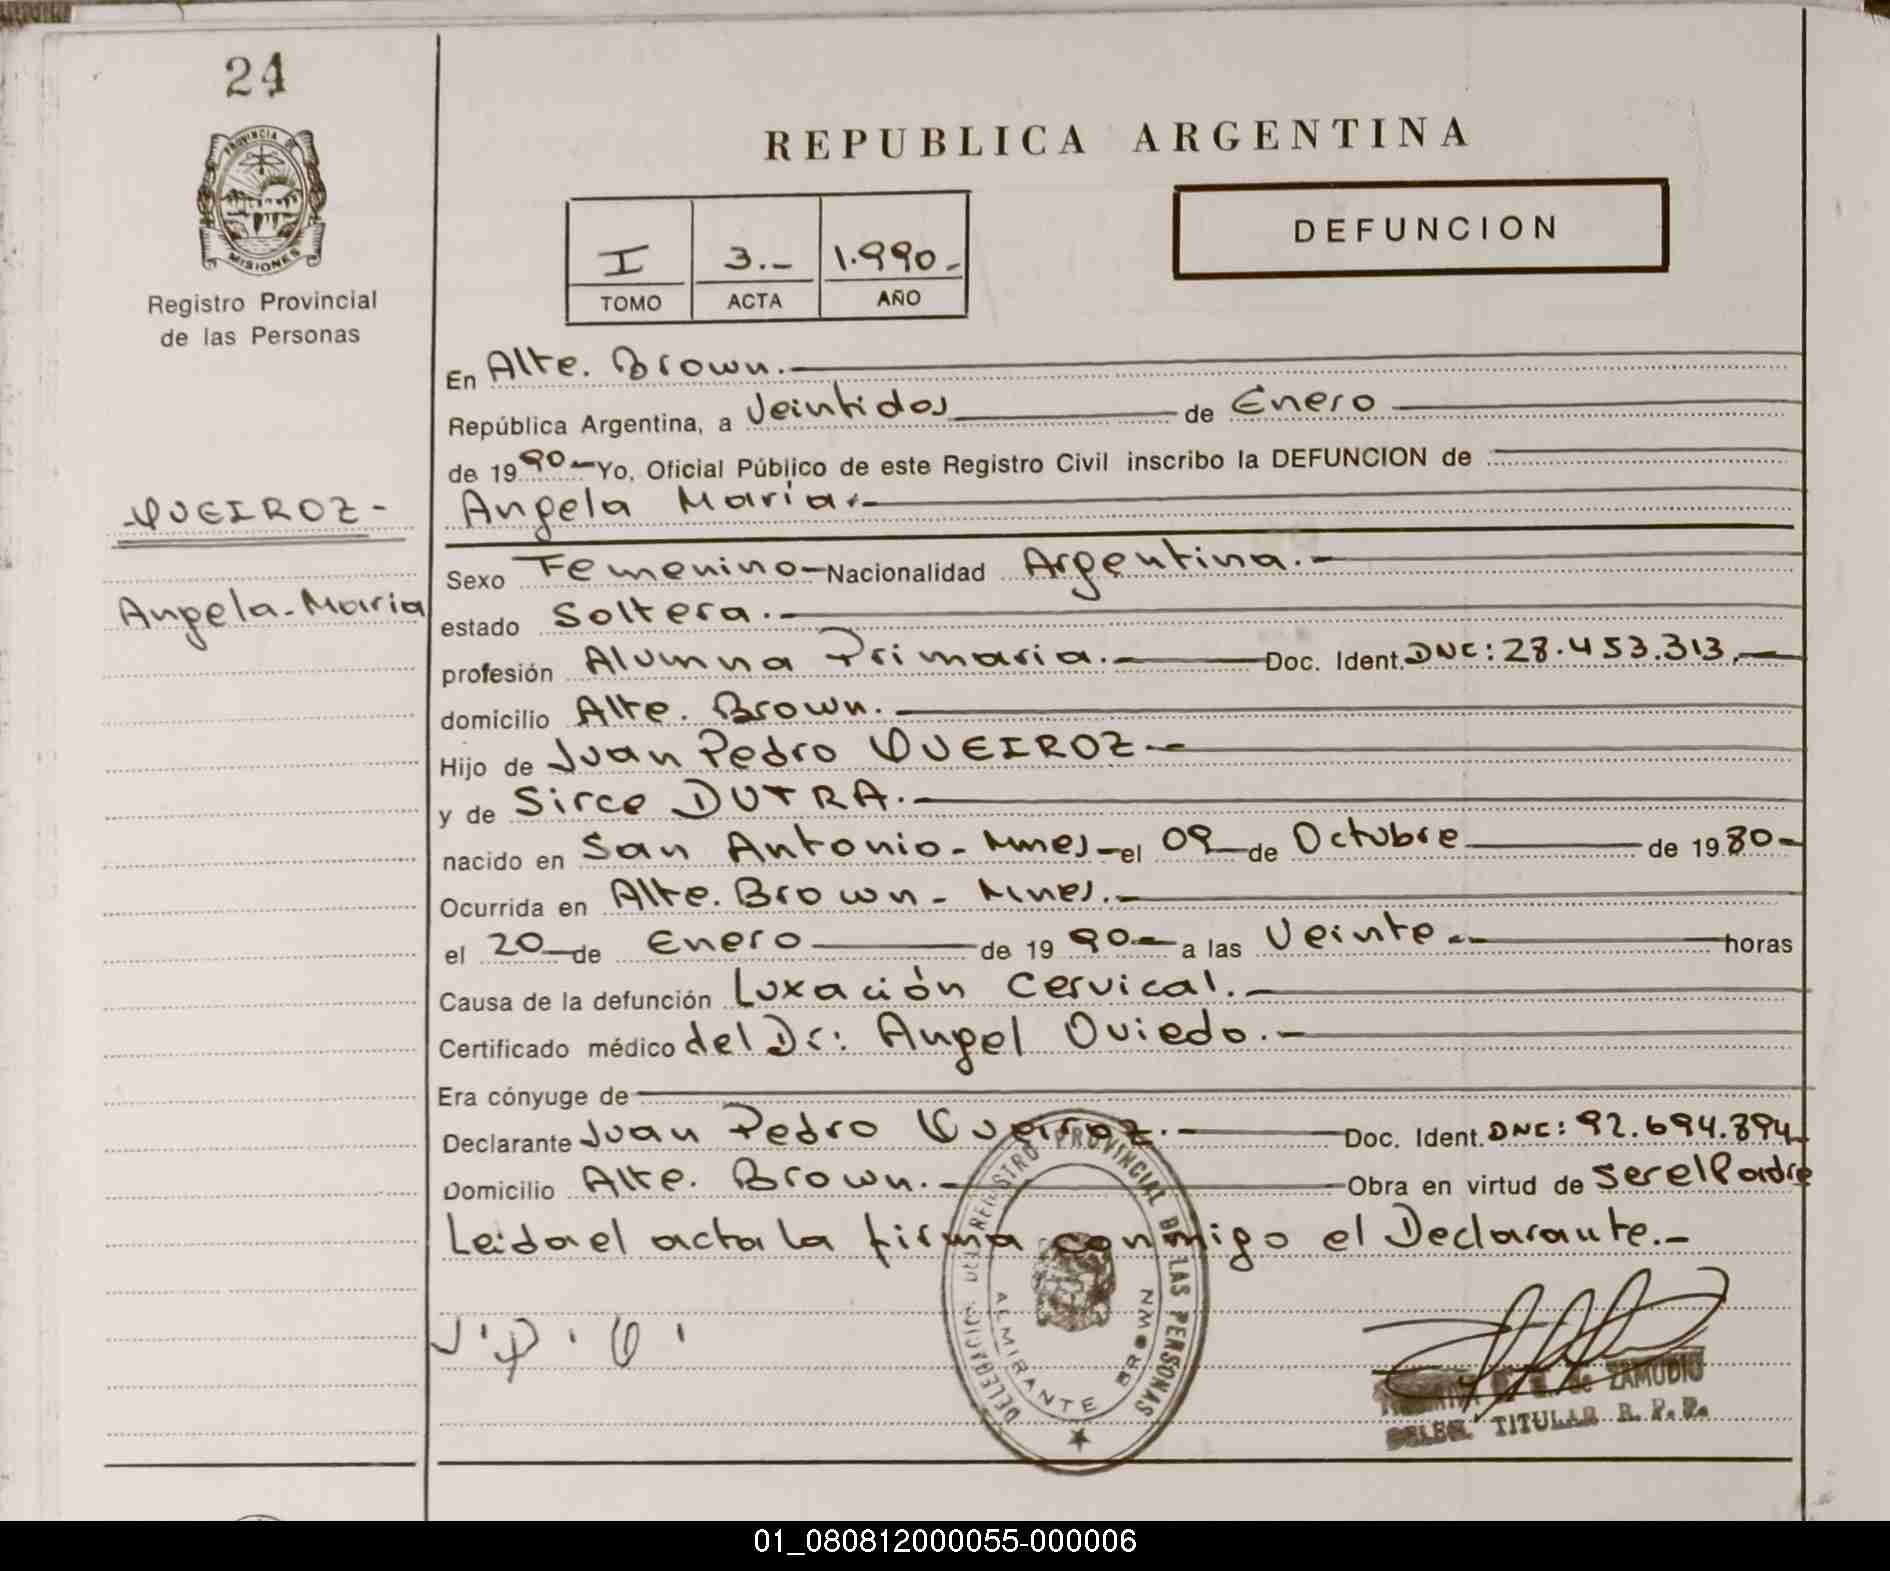 24
PROVINCIA DE
MISIONES
Registro Provincial
de las Personas
QUEIROZ-
Angela-Maria
REPUBLICA ARGENTINA
DEFUNCION
I 3.- 1.990.-
TOMO ACTA AÑO
En Alte. Brown.-
República Argentina, a Veintidos de Enero
de 1990- Yo, Oficial Público de este Registro Civil inscribo la DEFUNCION de
Angela Maria.-
Sexo Femenino- Nacionalidad Argentina.-
estado Soltera.-
profesión Alumna Primaria.- Doc. Ident. DNC: 28.453.313.-
domicilio Alte. Brown.-
Hijo de Juan Pedro QUEIROZ.-
y de Sirce DUTRA.-
nacido en San Antonio- Mnes- el 09 de Octubre de 1980-
Ocurrida en Alte. Brown- Mnes.-
el 20 de Enero de 1990- a las Veinte.- horas
Causa de la defunción Luxación Cervical.-
Certificado médico del Dr: Angel Oviedo.-
Era cónyuge de
Declarante Juan Pedro Queiroz.- Doc. Ident. DNC: 92.694.894-
Domicilio Alte. Brown.- Obra en virtud de ser el Padre
Leida el acta la firma conmigo el Declarante.-
J.P.Q.
DELEGACION DEL REGISTRO PROVINCIAL DE LAS PERSONAS
ALMIRANTE BROWN
de ZAMUDIO
DELEG. TITULAR R. P. P.
01_080812000055-000006